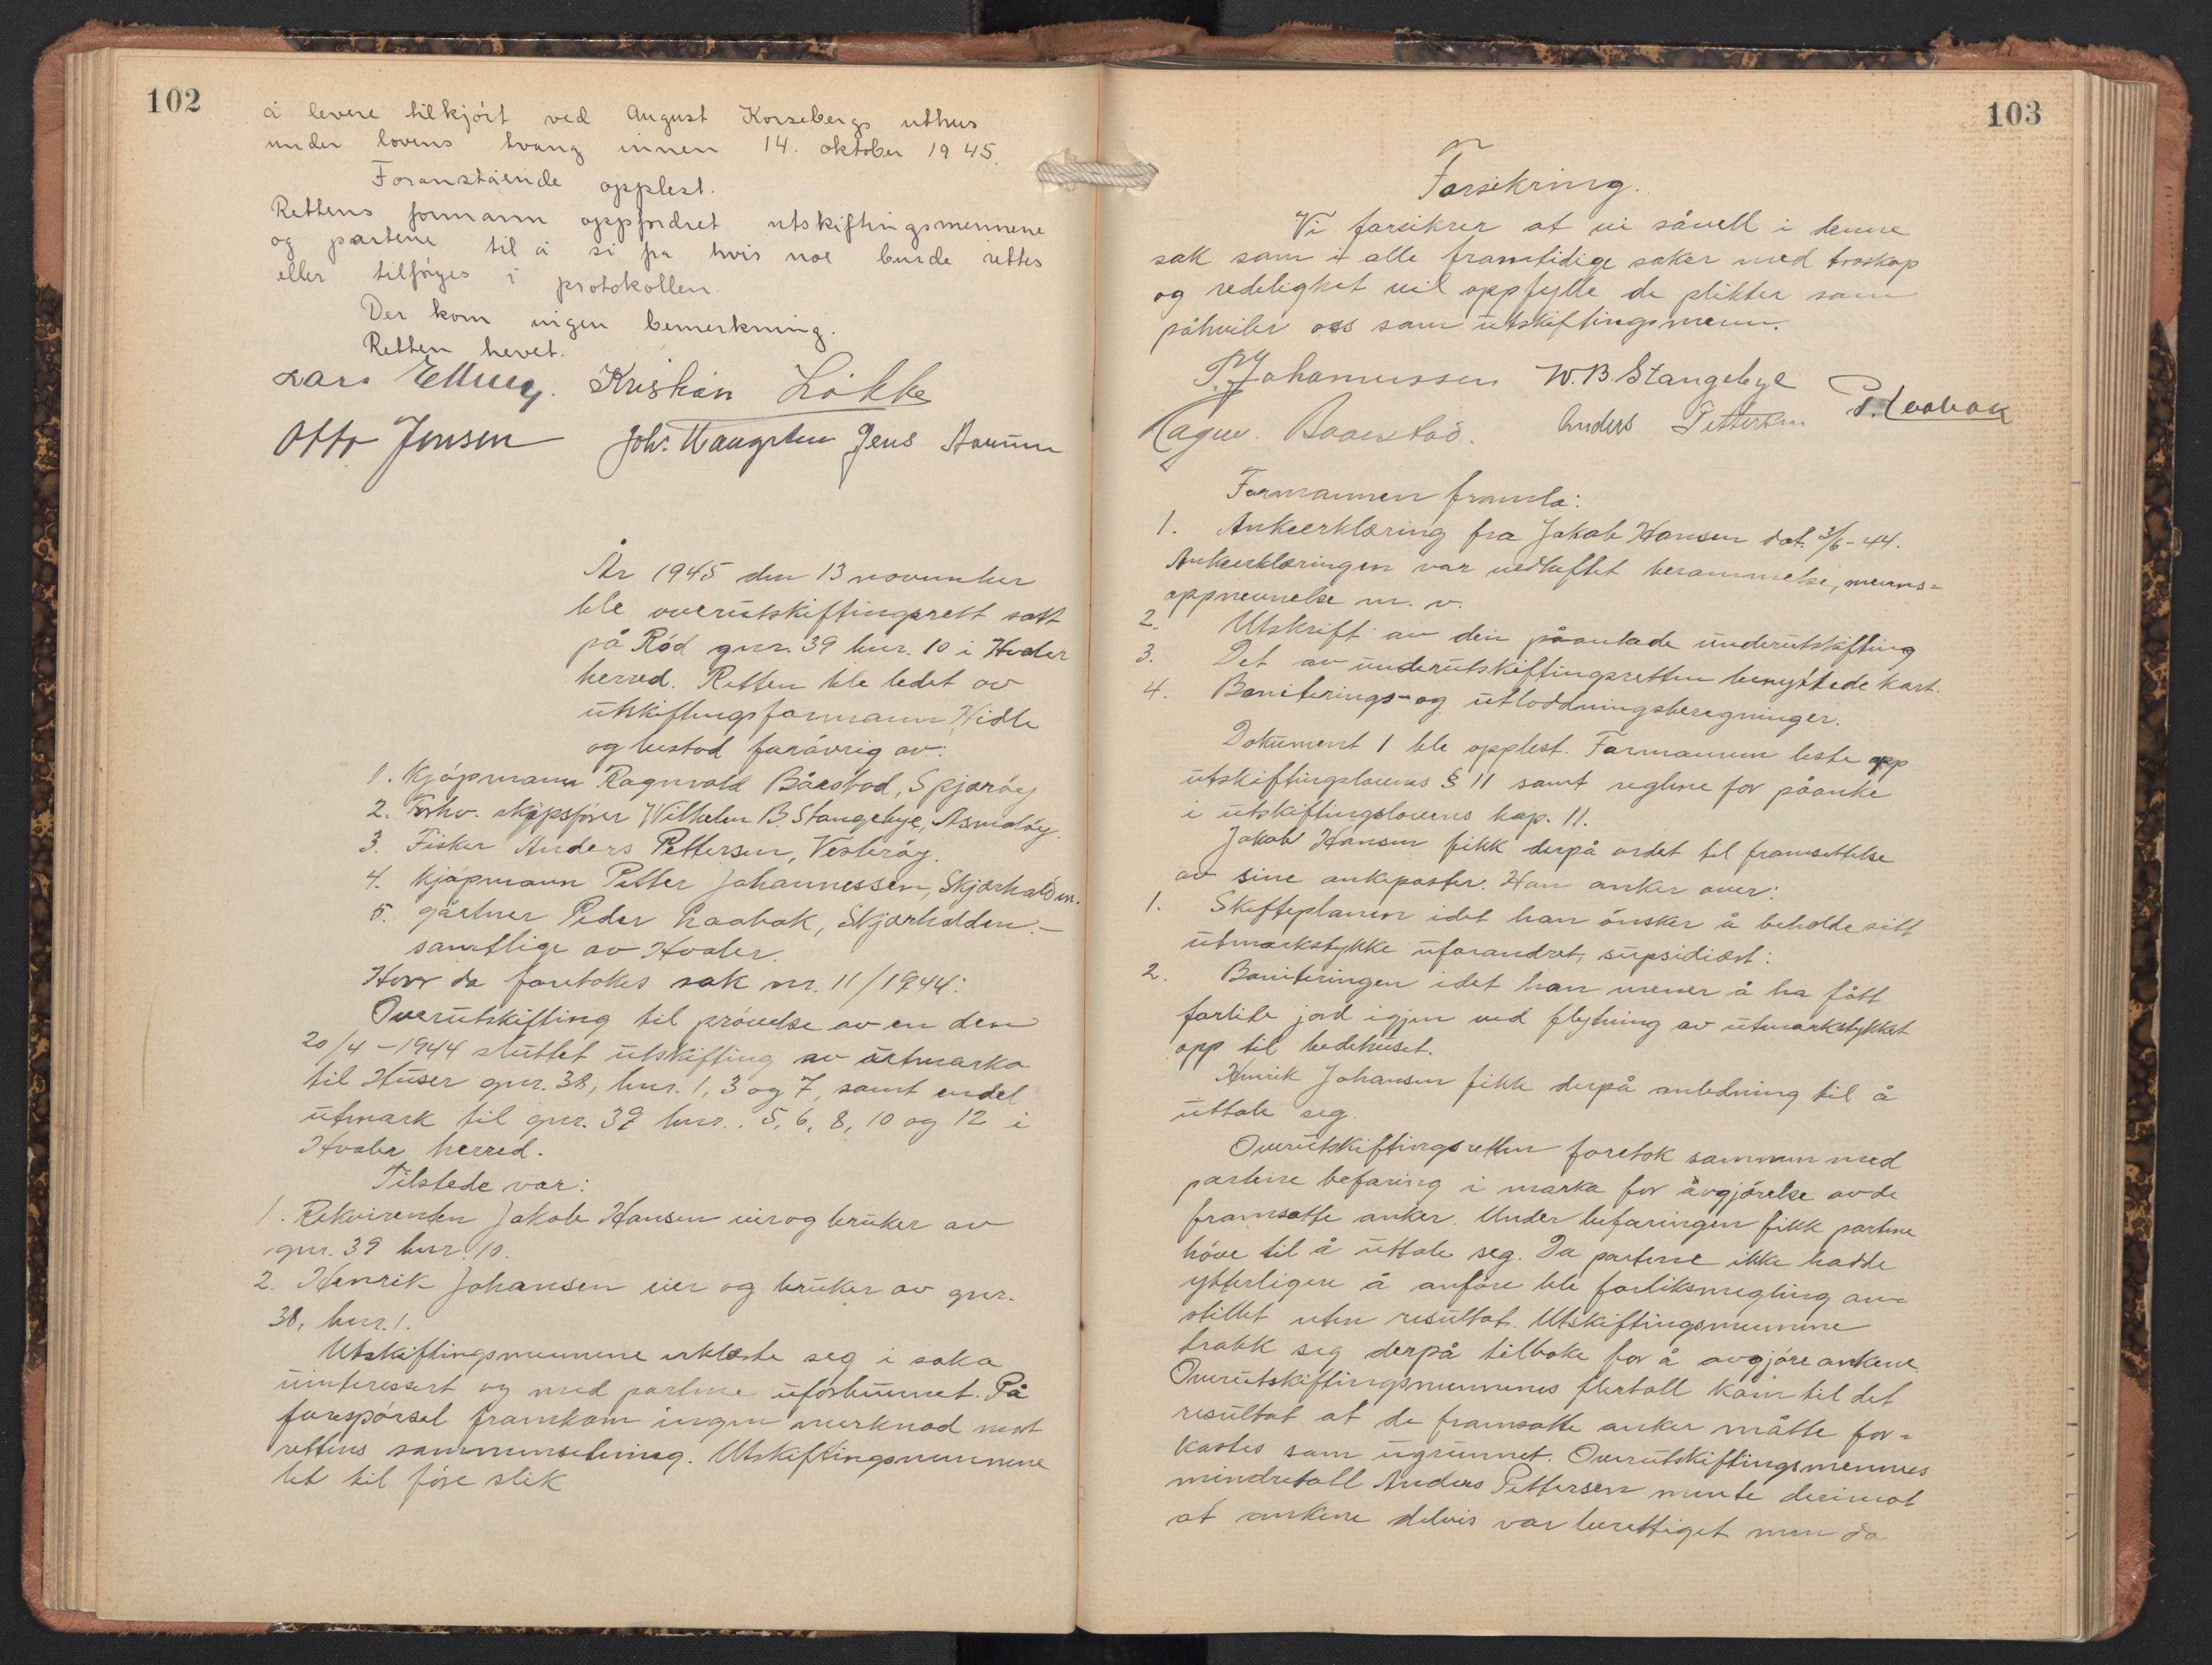 102
å levere tilkjørt ved August Korsebergs uthus
under lovens tvang innen 14. oktober 1945.
Foranstående opplest.
Rettens formann oppfordret utskiftingsmennene
og partene til å si fra hvis noe burde rettes
eller tilføyes i protokollen.
Der kom ingen bemerkning.
Retten hevet.
Lars Elling. Kristian Løkke
Otto Jensen Joh. Haugsten Jens
År 1945 den 13 november
ble overutskiftingsrett satt
på Rød gnr. 39 bnr. 10 i Hvaler
herred. Retten ble ledet av
utskiftingsformann Hidle
og bestod forøvrig av:
1. Kjøpmann Ragnvald Båestad, Spjærøy
2. Forhv. skipsfører Wilhelm B. Stangebye, Asmaløy.
3. Fisker Anders Pettersen, Vesterøy.
4. Kjøpmann Petter Johannessen, Skjærhalden.
5. gårtner Peder Raabok, Skjærhalden.-
samtlige av Hvaler.
Hvor da foretokes sak nr. 11/1944:
Overutskifting til prøvelse av en den
20/4-1944 sluttet utskifting av utmarka
til Huser gnr. 38, bnr. 1, 3 og 7, samt endel
utmark til gnr. 39 bnr. 5, 6, 8, 10 og 12 i
Hvaler herred.
Tilstede var:
1. Rekvirenten Jakob Hansen eier og bruker av
gnr. 39 bnr. 10.
2. Henrik Johansen eier og bruker av gnr.
38, bnr. 1.
Utskiftingsmennene erklærte seg i saka
uinteressert og med partene uforbunnet. På
forespørsel framkom ingen merknad mot
rettens sammensetning. Utskiftingsmennene
let til føre slik
103
Forsikring.
Vi forsikrer at vi såvell i denne
sak som i alle framtidige saker med troskap
og redelighet vil oppfylle de plikter som
påhviler oss som utskiftingsmenn.
P. Johannessen W.B. Stangebye
Ragnv. Baaestad. Anders Pettersen
Formannen framla:
1. Ankeerklæring fra Jakob Hansen dat. 3/6-44.
Ankeerklæringen var vedheftet berammelse, menns=
oppnevnelse m. v.
2. Utskrift av den påankade underutskifting
3. Det av underutskiftingsretten benyttede kart.
4. Boniterings- og utloddningsberegninger.
Dokument 1 ble opplest. Formannen leste opp
utskiftingslovens § 11 samt reglene for påanke
i utskiftingslovens kap. 11.
Jakob Hansen fikk derpå ordet til framsettelse
av sine ankeposter. Han anker over:
1. Skifteplanen idet han ønsker å beholde sitt
utmarkstykke uforandret, supsidiært:
2. Boniteringen idet han mener å ha fått
forlite jord igjen ved flytning av utmarkstykket
opp til bedehuset.
Henrik Johansen fikk derpå anledning til å
uttale seg.
Overutskiftingsretten foretok sammen med
partene befaring i marka for avgjørelse av de
framsatte anker. Under befaringen fikk partene
høve til å uttale seg. Da partene ikke hadde
ytterligere å anføre ble forliksmegling an=
stillet uten resultat. Utskiftingsmennene
trakk seg derpå tilbake for å avgjøre ankene.
Overutskiftingsmennenes flertall kom til det
resultat at de framsatte anker måtte for=
kastes som ugrunnet. Overutskiftingsmennes
mindretall Anders Pettersen mente derimot
at ankene delvis var berettiget men da